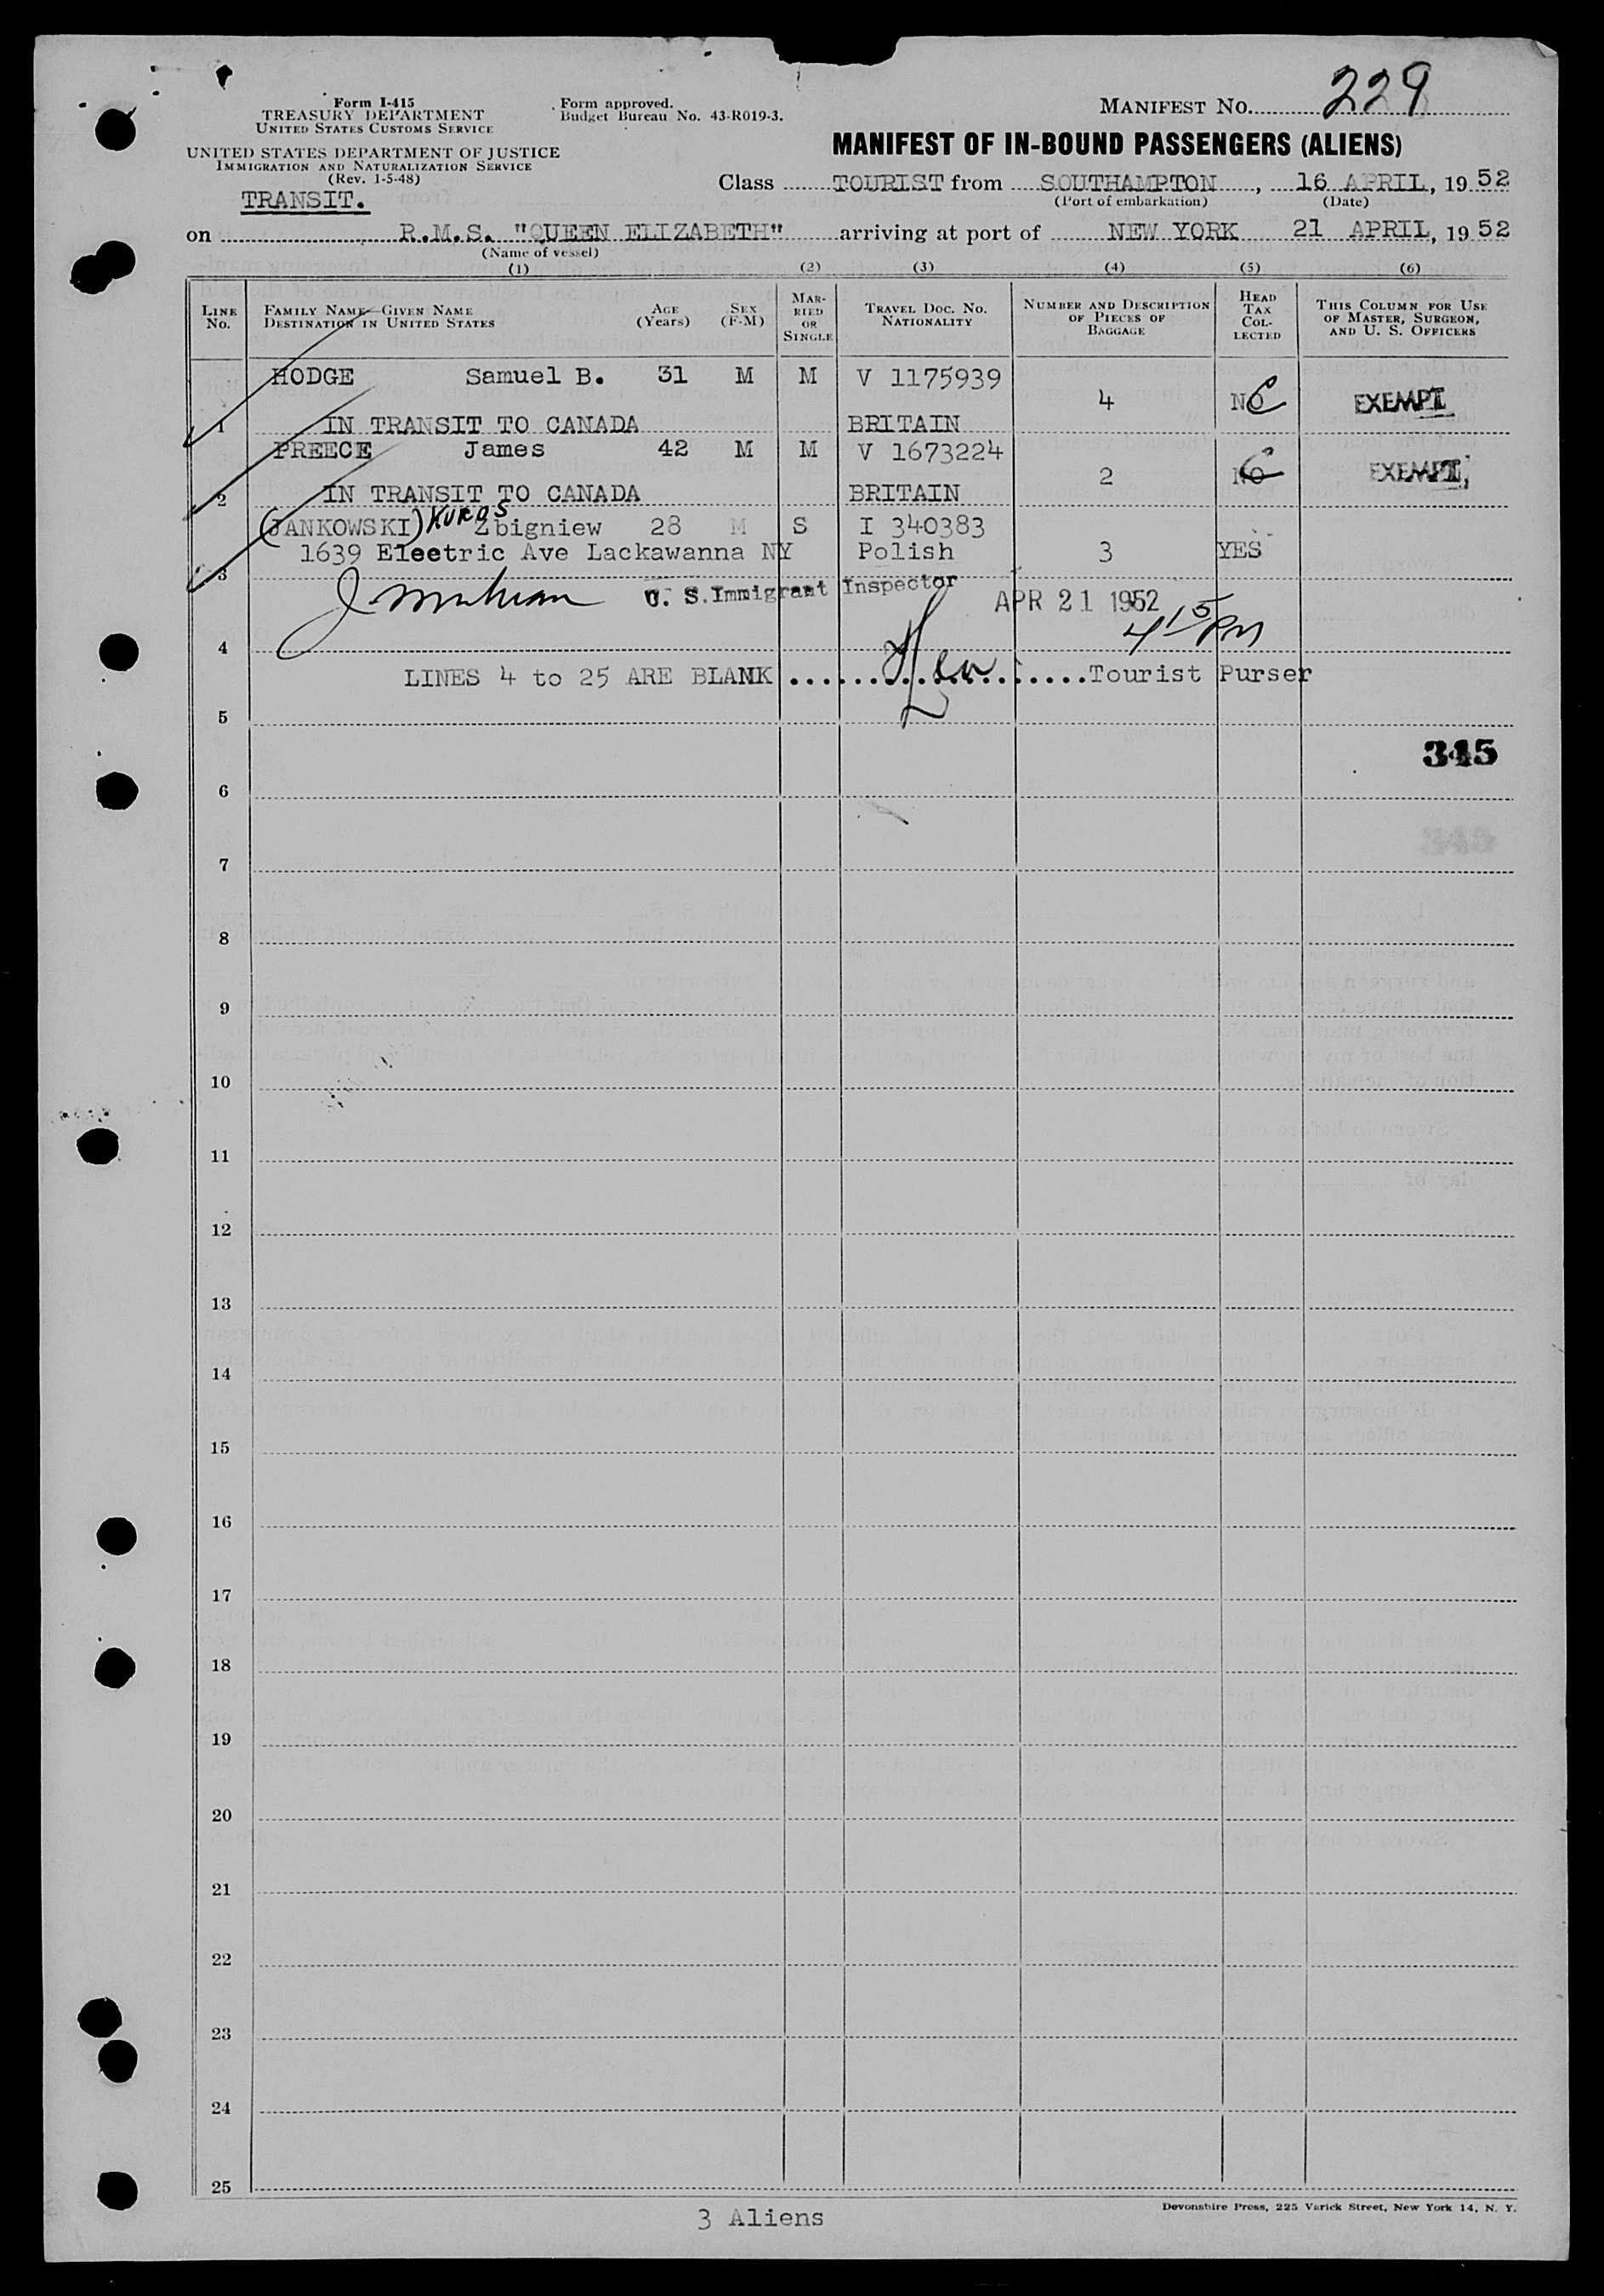 Form I-415
TREASURY DEPARTMENT
UNITED STATES CUSTOMS SERVICE
UNITED STATES DEPARTMENT OF JUSTICE
IMMIGRATION AND NATURALIZATION SERVICE
(Rev. 1-5-48)
TRANSIT.
Form approved.
Budget Bureau No. 43-R019-3.
MANIFEST NO. 229
MANIFEST OF IN-BOUND PASSENGERS (ALIENS)
Class TOURIST from SOUTHAMPTON, 16 APRIL, 1952
(Port of embarkation) (Date)
on R.M.S. "QUEEN ELIZABETH" arriving at port of NEW YORK 21 APRIL, 1952
(Name of vessel)
(1) (2) (3) (4) (5) (6)
LINE NO. FAMILY NAME—GIVEN NAME DESTINATION IN UNITED STATES AGE (Years) SEX (F-M) MARRIED OR SINGLE TRAVEL DOC. NO. NATIONALITY NUMBER AND DESCRIPTION OF PIECES OF BAGGAGE HEAD TAX COLLECTED THIS COLUMN FOR USE OF MASTER, SURGEON, AND U. S. OFFICERS
HODGE Samuel B. 31 M M V 1175939
4 NO EXEMPT
1 IN TRANSIT TO CANADA BRITAIN
PREECE James 42 M M V 1673224
2 NO EXEMPT
2 IN TRANSIT TO CANADA BRITAIN
(JANKOWSKI) KUROS Zbigniew 28 M S I 340383
1639 Electric Ave Lackawanna NY Polish 3 YES
3
U. S. Immigrant Inspector APR 21 1952
4 15 PM
4
LINES 4 to 25 ARE BLANK Tourist Purser
5
345
6
7
8
9
10
11
12
13
14
15
16
17
18
19
20
21
22
23
24
25
3 Aliens
Devonshire Press, 225 Varick Street, New York 14, N. Y.